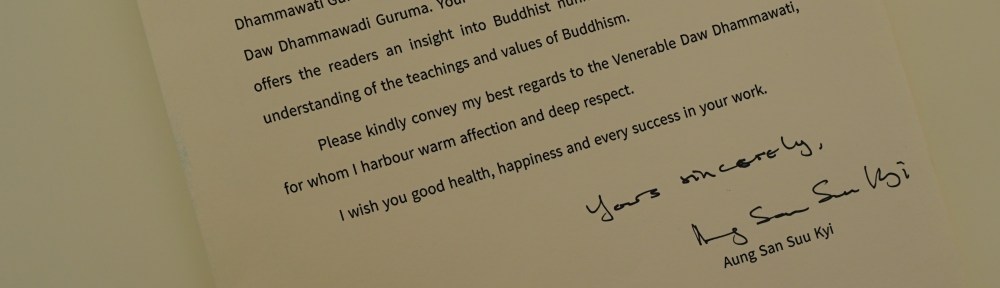 Dhammawati
Daw Dhammawadi Guruma.
offers the readers an insight into Buddhist
understanding of the teachings and values of Buddhism.
Please kindly convey my best regards to the Venerable Daw Dhammawati,
for whom I harbour warm affection and deep respect.
I wish you good health, happiness and every success in your work.
Yours sincerely,
Aung San Suu Kyi
Aung San Suu Kyi